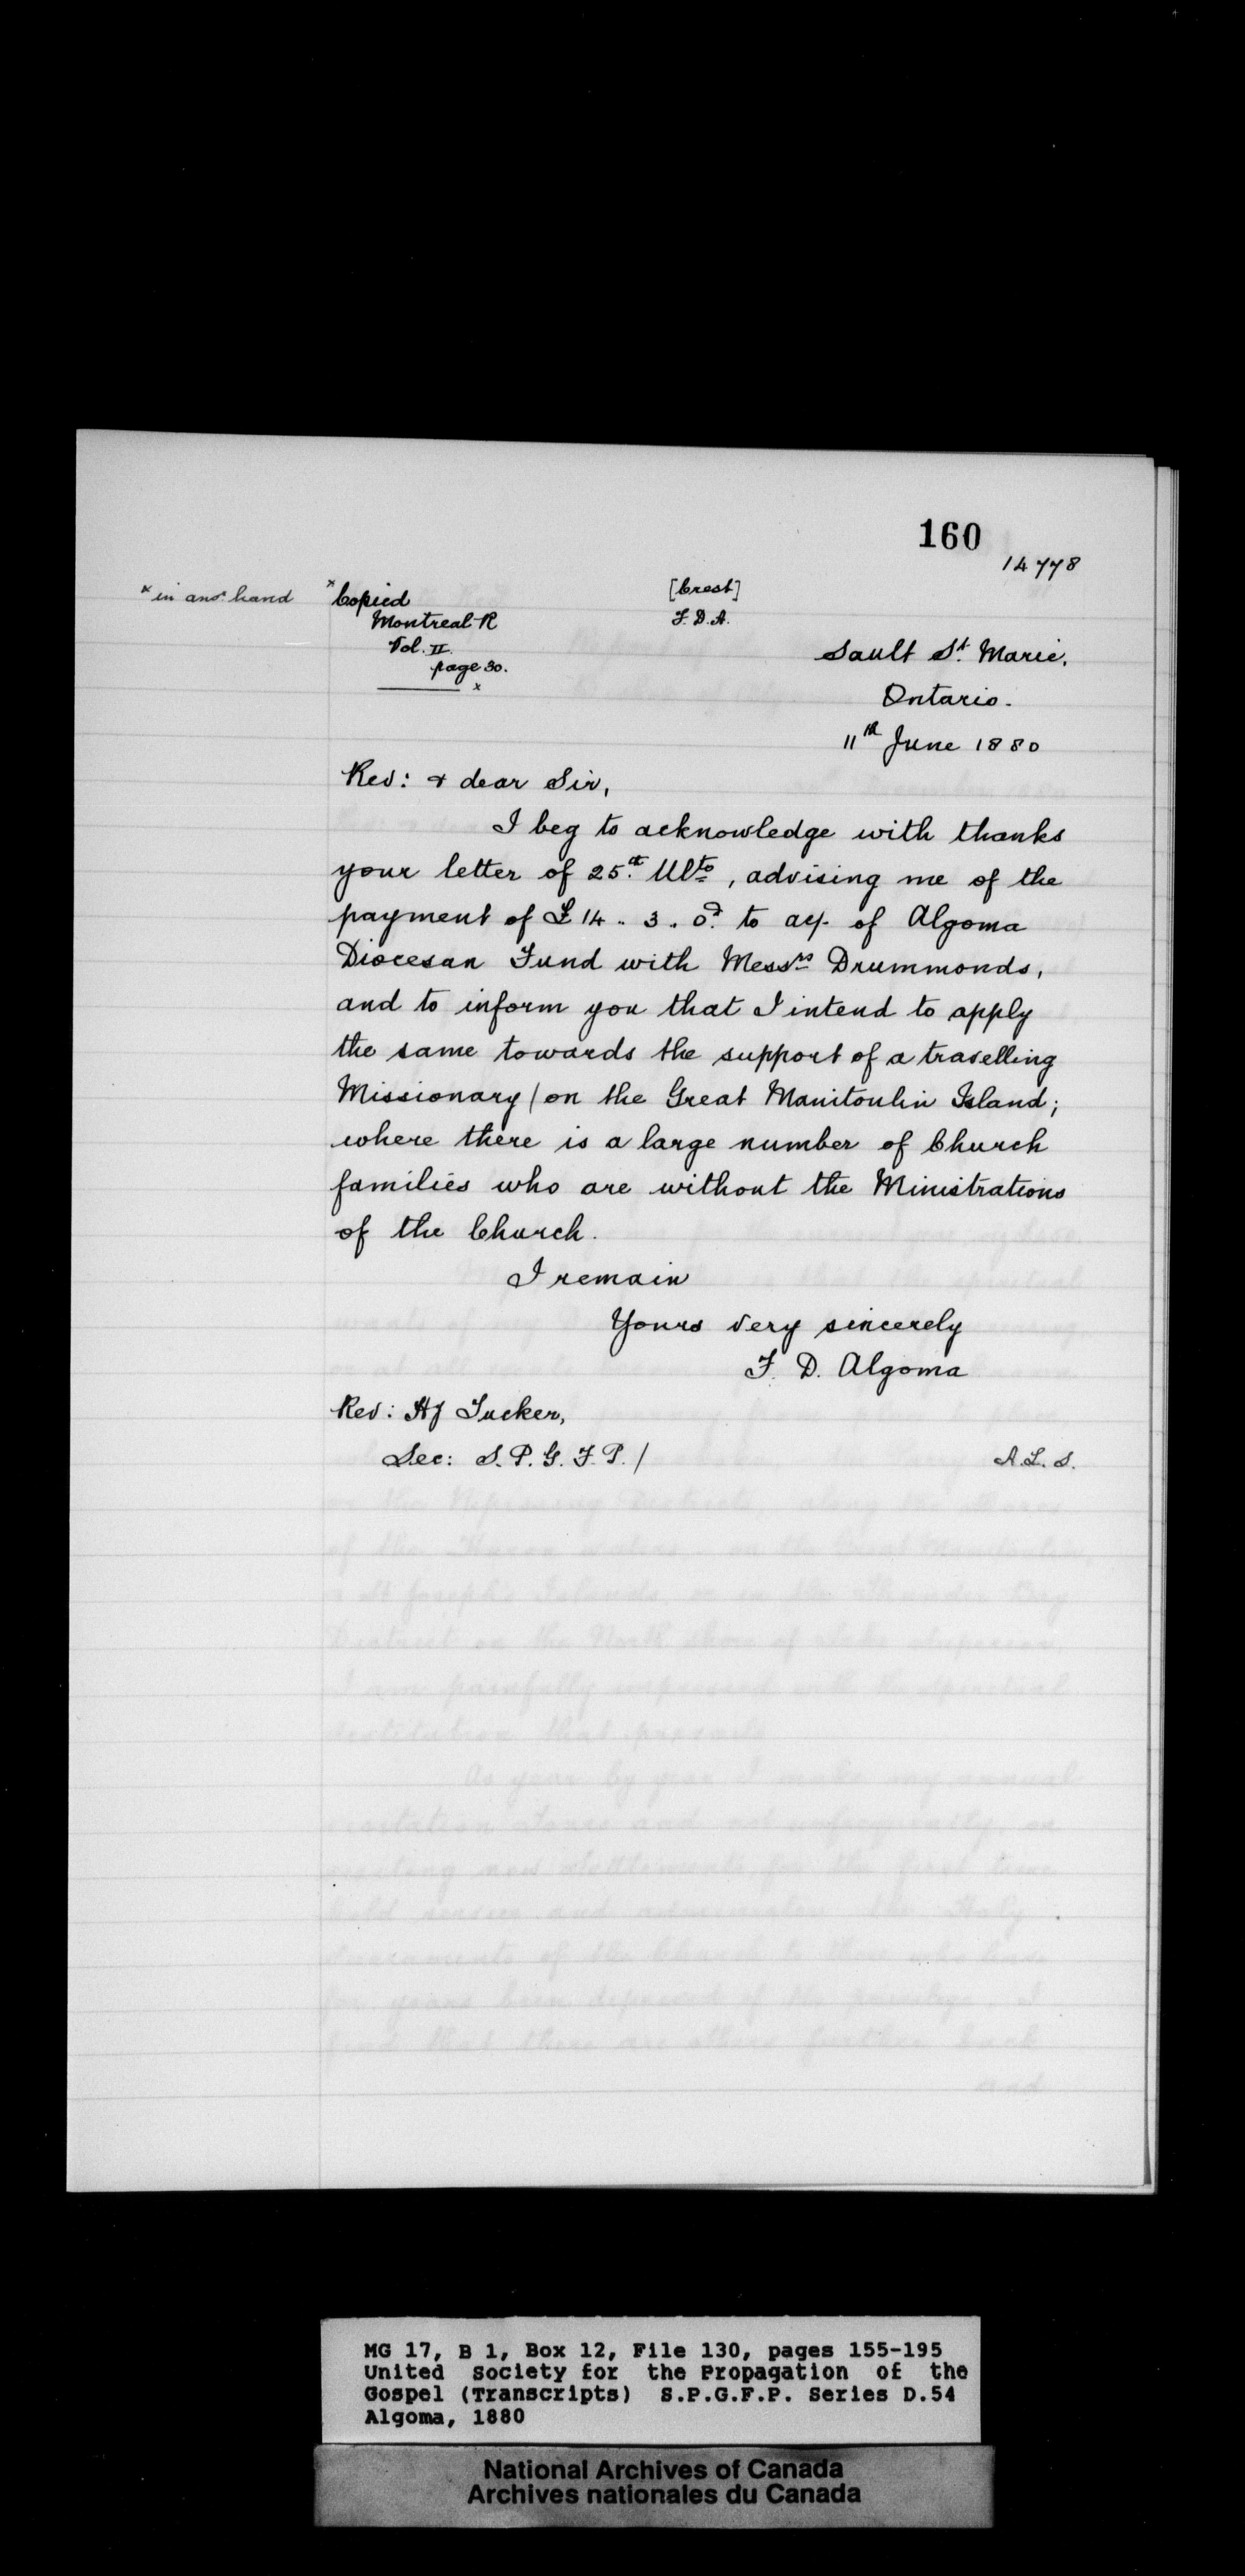 160
14778
x in anor. hand
x Copied
Montreal R
Vol. II.
page 30.
x
[Crest]
F. D. A.
Sault St. Marie,
Ontario.
11th June 1880
Rev: & dear Sir,
I beg to acknowledge with thanks
your letter of 25th. Ulto, advising me of the
payment of £14 .. 3 .. 0d. to a/c. of Algoma
Diocesan Fund with Messrs Drummonds,
and to inform you that I intend to apply
the same towards the support of a travelling
Missionary / on the Great Manitoulin Island;
where there is a large number of Church
families who are without the Ministrations
of the Church.
I remain
Yours very sincerely
F. D. Algoma
Rev: HJ Tucker,
Sec: S. P. G. F. P. /
A. L. S.
MG 17, B 1, Box 12, File 130, pages 155-195
United Society for the Propagation of the
Gospel (Transcripts) S.P.G.F.P. Series D.54
Algoma, 1880
National Archives of Canada
Archives nationales du Canada